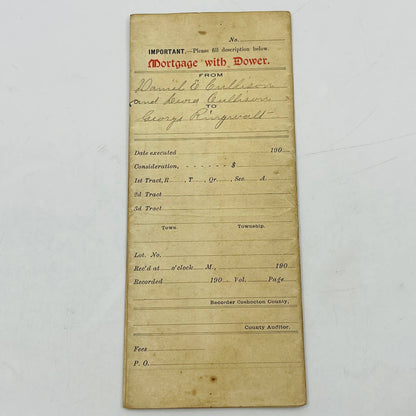 No.
IMPORTANT.—Please fill description below.
Mortgage with Dower.
FROM
Daniel E Cullison
and Cullison
TO
George Ringwalt
Date executed 190
Consideration, - - - - - - - $
1st Tract, R , T , Qr , Sec. A
2d Tract
3d Tract
Town. Township.
Lot. No.
Rec'd at o'clock M., 190
Recorded 190 Vol. Page
Recorder Coshocton County,
County Auditor.
Fees
P. O.